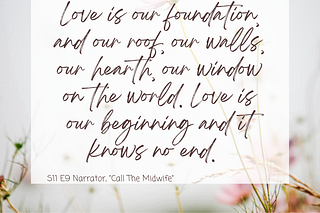 Love is our foundation,
and our roof, our walls,
our hearth, our window
on the world. Love is
our beginning and it
knows no end.
S11 E9 Narrator, "Call The Midwife"